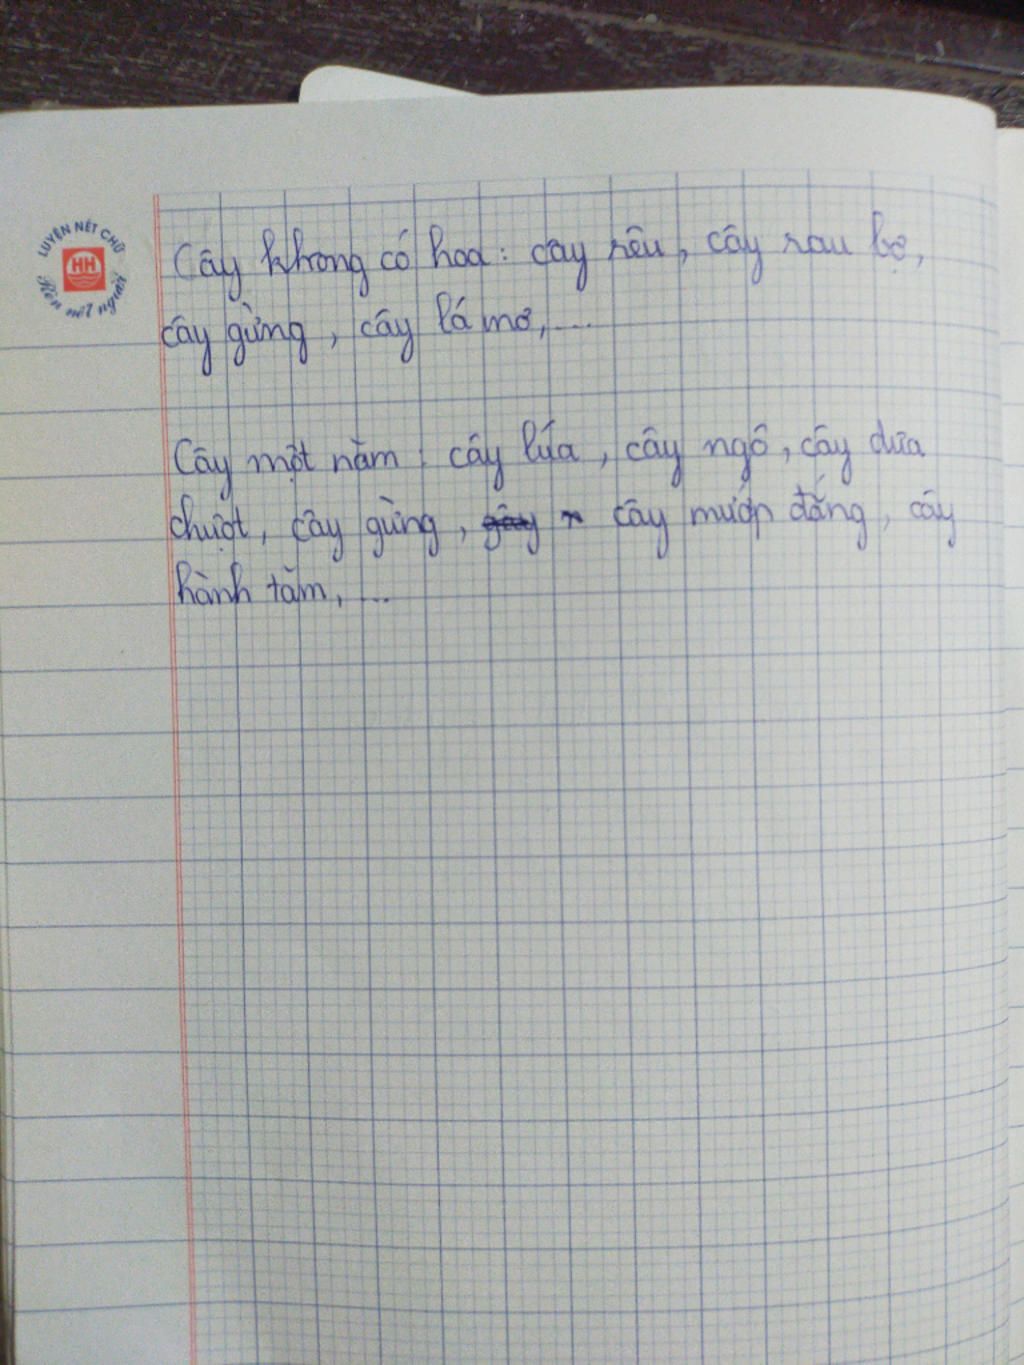 LUYỆN NÉT CHỮ
HH
Rèn nết người
Cây không có hoa: cây rêu, cây rau bợ,
cây gừng, cây lá mơ, ....
Cây một năm: cây lúa, cây ngô, cây dưa
chuột, cây gừng, cây mướp đắng, cây
hành tăm, ....